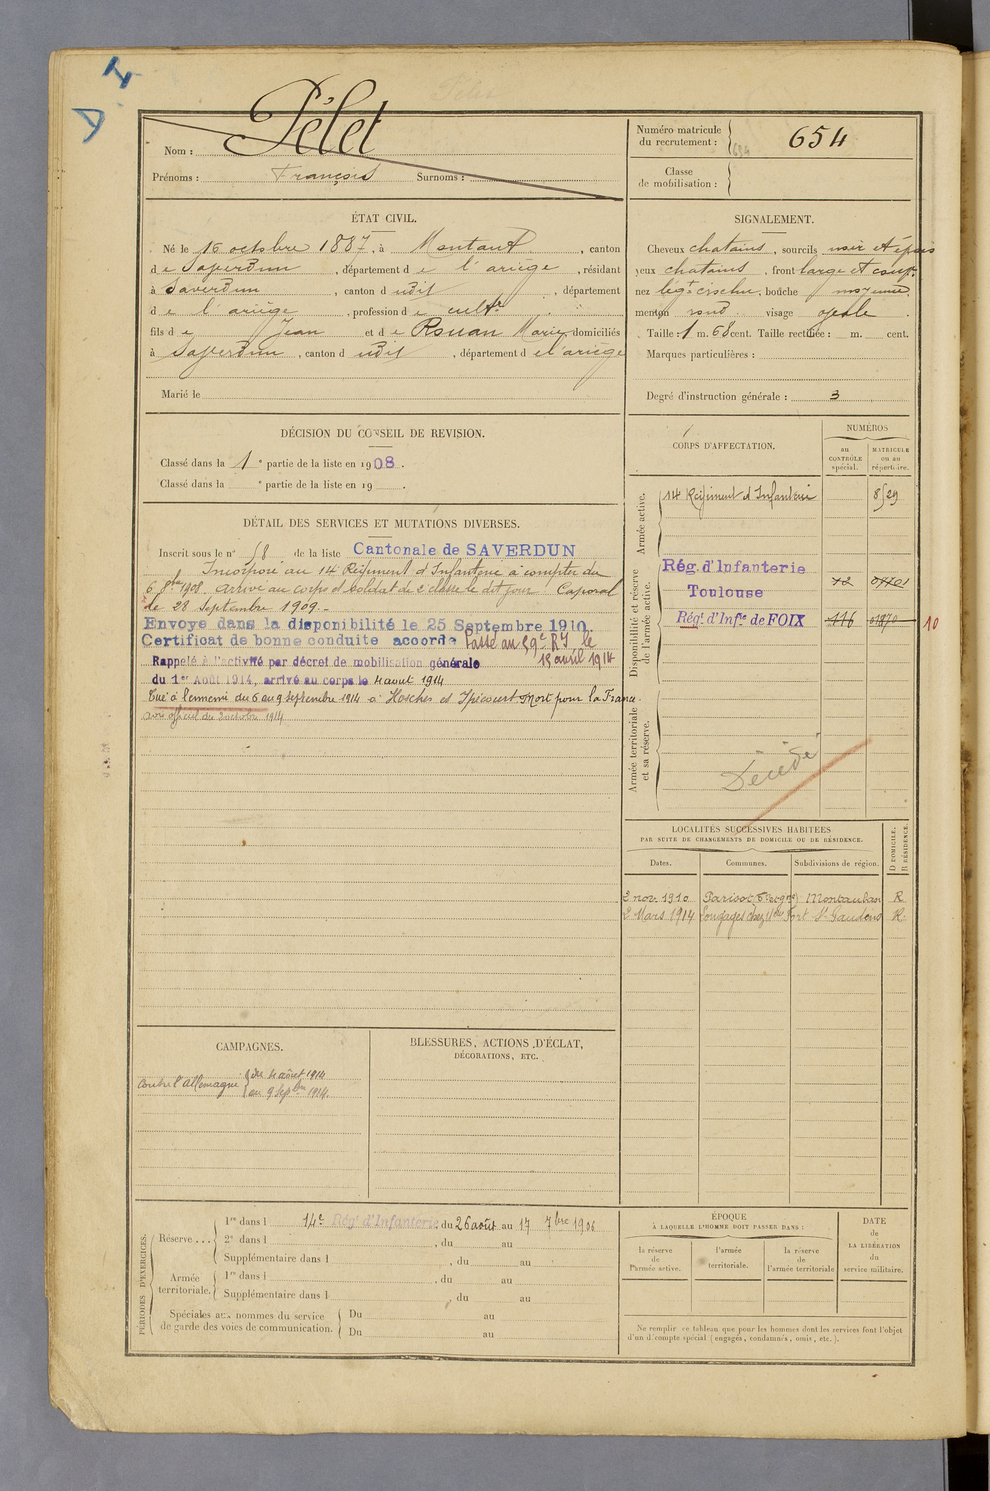 Pélet
Nom :
Prénoms : François Surnoms :
Numéro matricule
du recrutement : 654
Classe
de mobilisation :
ÉTAT CIVIL.
Né le 16 octobre 1887, à Montaut, canton
de Saverdun, département de l'ariège, résidant
à Saverdun, canton d udit, département
de l'ariège, profession de cultr
fils de Jean et de Rouan Marie domiciliés
à Saverdun, canton d udit, département de l'ariège
Marié le
SIGNALEMENT.
Cheveux chatains, sourcils noir et épais
yeux chatains, front large et
nez, bouche moyenne
menton rond visage ovale.
Taille : 1 m. 68 cent. Taille rectifiée : m. cent.
Marques particulières :
Degré d'instruction générale : 3
DÉCISION DU CONSEIL DE REVISION.
Classé dans la 1e partie de la liste en 1908.
Classé dans la e partie de la liste en 19 .
DÉTAIL DES SERVICES ET MUTATIONS DIVERSES.
Inscrit sous le n° 58 de la liste Cantonale de SAVERDUN
Incorporé au 14 Régiment d'Infanterie à compter du
6 8bre 1908. arrivé au corps et soldat de 2e classe le dit jour Caporal
le 28 Septembre 1909.-
Envoyé dans la disponibilité le 25 Septembre 1910.
Certificat de bonne conduite accordé Passé au 59e RI le
15 avril 1914
Rappelé à l'activité par décret de mobilisation générale
du 1er Août 1914, arrivé au corps le 4 aout 1914
Tué à l'ennemi du 6 au 9 Septembre 1914 à Hosches et Ipécourt Mort pour la France
avis officiel du 2 octobre 1914
CORPS D'AFFECTATION.
NUMÉROS
au CONTRÔLE spécial.
MATRICULE ou au répertoire.
Armée active.
14 Régiment d'Infanterie 8529
Disponibilité et réserve de l'armée active.
Rég. d'Infanterie
Toulouse
Rég. d'Infie de FOIX 116 01870 10
Armée territoriale et sa réserve.
Décédé
LOCALITÉS SUCCESSIVES HABITÉES
PAR SUITE DE CHANGEMENTS DE DOMICILE OU DE RÉSIDENCE.
Dates. Communes. Subdivisions de région. D DOMICILE. R RÉSIDENCE.
2 nov. 1910 Parisot Montauban R
2 Mars 1914 Longages St Gaudens R
CAMPAGNES.
Contre l'Allemagne du 4 août 1914
au 9 Septbre 1914.
BLESSURES, ACTIONS D'ÉCLAT,
DÉCORATIONS, ETC.
PÉRIODES D'EXERCICES.
Réserve ... 1re dans l 14e Rég. d'Infanterie du 26 août au 17 7bre 190
2e dans l , du au
Supplémentaire dans l , du au
Armée territoriale. 1re dans l , du au
Supplémentaire dans l , du au
Spéciales aux hommes du service
de garde des voies de communication. Du au
Du au
ÉPOQUE
À LAQUELLE L'HOMME DOIT PASSER DANS :
la réserve de l'armée active.
l'armée territoriale.
la réserve de l'armée territoriale
DATE de LA LIBÉRATION du service militaire.
Ne remplir ce tableau que pour les hommes dont les services font l'objet
d'un décompte spécial (engagés, condamnés, omis, etc.).